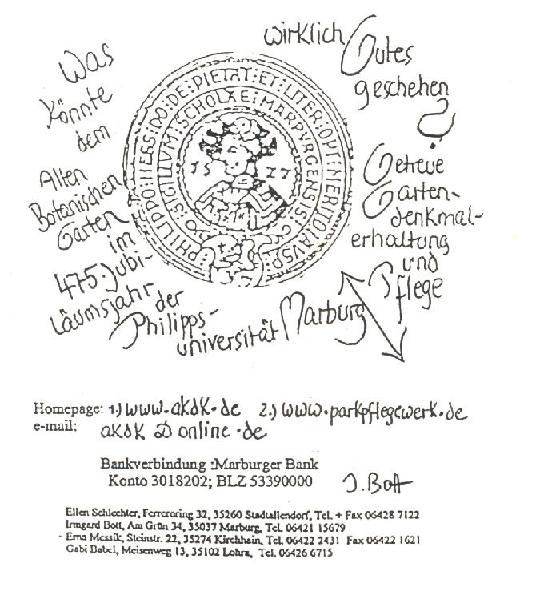 Was
könnte
dem
Alten
Botanischen
Garten
im
475. Jubi-
läumsjahr
der
Philipps-
universität Marburg
wirklich Gutes
geschehen
?
Getreue
Garten-
denkmal-
erhaltung
und
Pflege
15 27
Homepage: 1.) www.akdk.de 2.) www.parkpflegewerk.de
e-mail: akdk @ online.de
Bankverbindung :Marburger Bank
Konto 3018202; BLZ 53390000
I. Bott
Ellen Schlechter, Ferreroring 32, 35260 Stadtallendorf, Tel. + Fax 06428 7122
Irmgard Bott, Am Grün 34, 35037 Marburg, Tel. 06421 15679
- Erna Messik, Steinstr. 22, 35274 Kirchhain, Tel. 06422 2431 Fax 06422 1621
Gabi Babel, Meisenweg 13, 35102 Lohra, Tel. 06426 6715